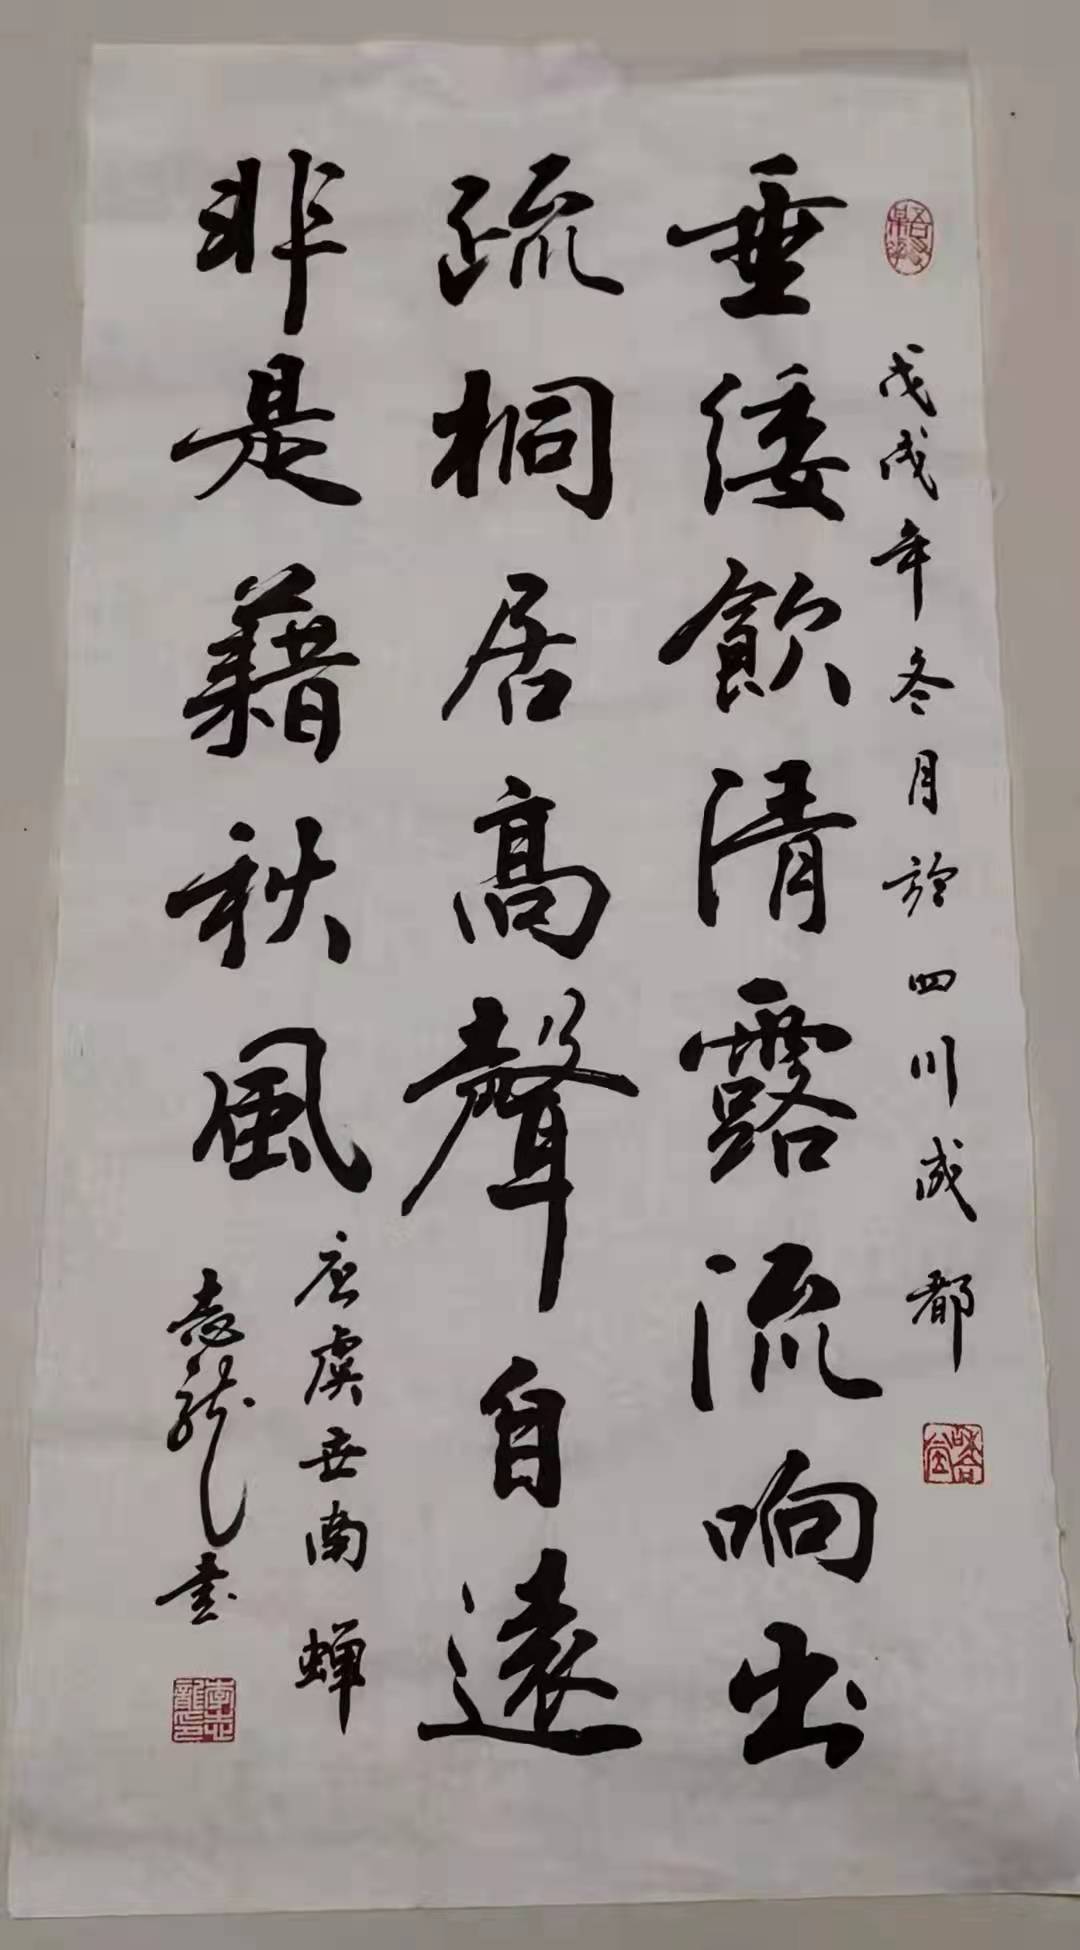 戊戌年冬月於四川成都
垂緌飲清露流响出
疏桐居高聲自遠
非是藉秋風
唐虞世南蝉
志龍書
李志龍印